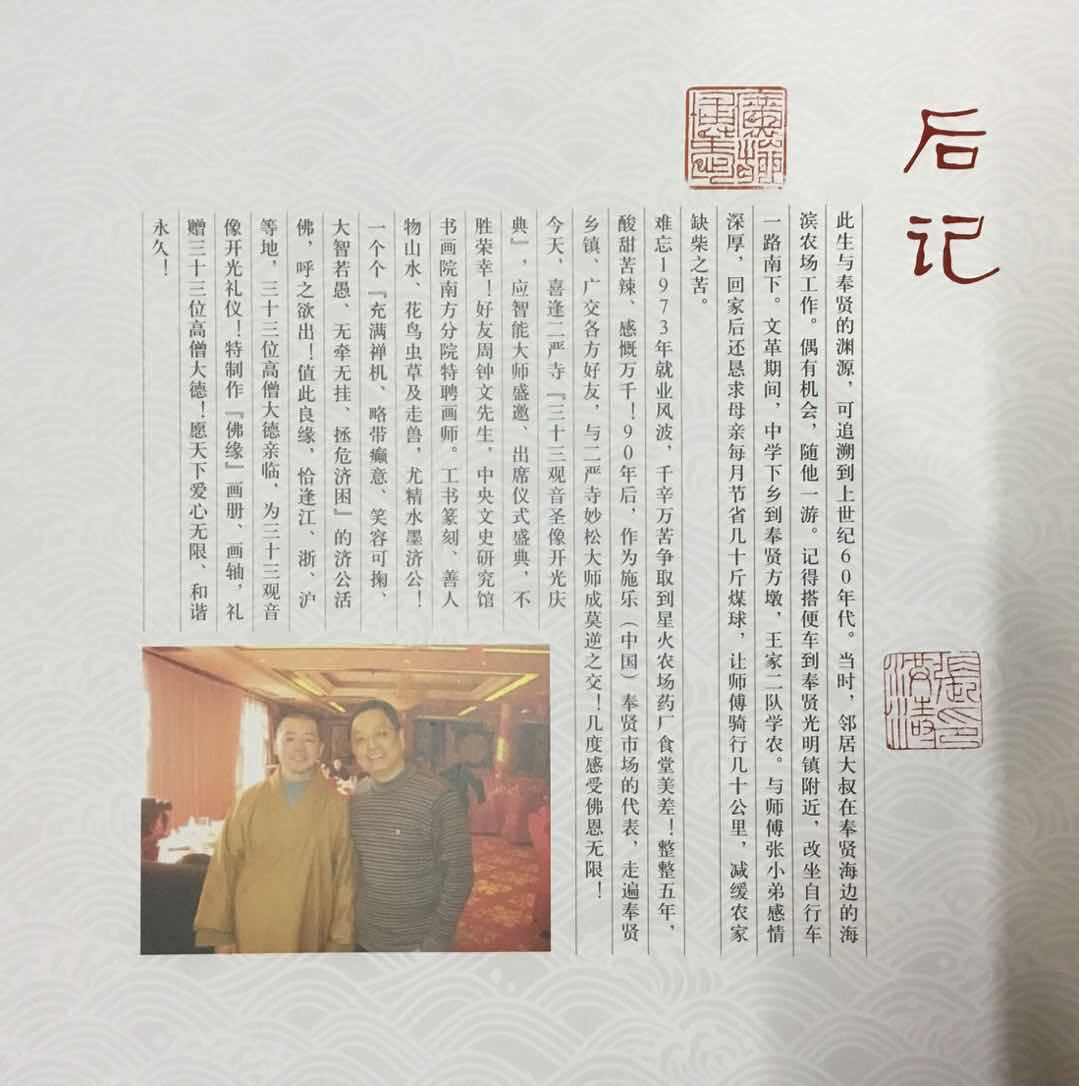 后记
此生与奉贤的渊源，可追溯到上世纪60年代。当时，邻居大叔在奉贤海边的海
滨农场工作。偶有机会，随他一游。记得搭便车到奉贤光明镇附近，改坐自行车
一路南下。文革期间，中学下乡到奉贤方墩，王家二队学农。与师傅张小弟感情
深厚，回家后还恳求母亲每月节省几十斤煤球，让师傅骑行几十公里，减缓农家
缺柴之苦。
难忘1973年就业风波，千辛万苦争取到星火农场药厂食堂美差！整整五年，
酸甜苦辣、感慨万千！90年后，作为施乐（中国）奉贤市场的代表，走遍奉贤
乡镇、广交各方好友，与二严寺妙松大师成莫逆之交！几度感受佛恩无限！
今天，喜逢二严寺『三十三观音圣像开光庆
典』，应智能大师盛邀、出席仪式盛典，不
胜荣幸！好友周钟文先生，中央文史研究馆
书画院南方分院特聘画师。工书篆刻、善人
物山水、花鸟虫草及走兽，尤精水墨济公！
一个个『充满禅机、略带癫意、笑容可掬、
大智若愚、无牵无挂、拯危济困』的济公活
佛，呼之欲出！值此良缘，恰逢江、浙、沪
等地，三十三位高僧大德亲临，为三十三观音
像开光礼仪！特制作『佛缘』画册、画轴，礼
赠三十三位高僧大德！愿天下爱心无限、和谐
永久！